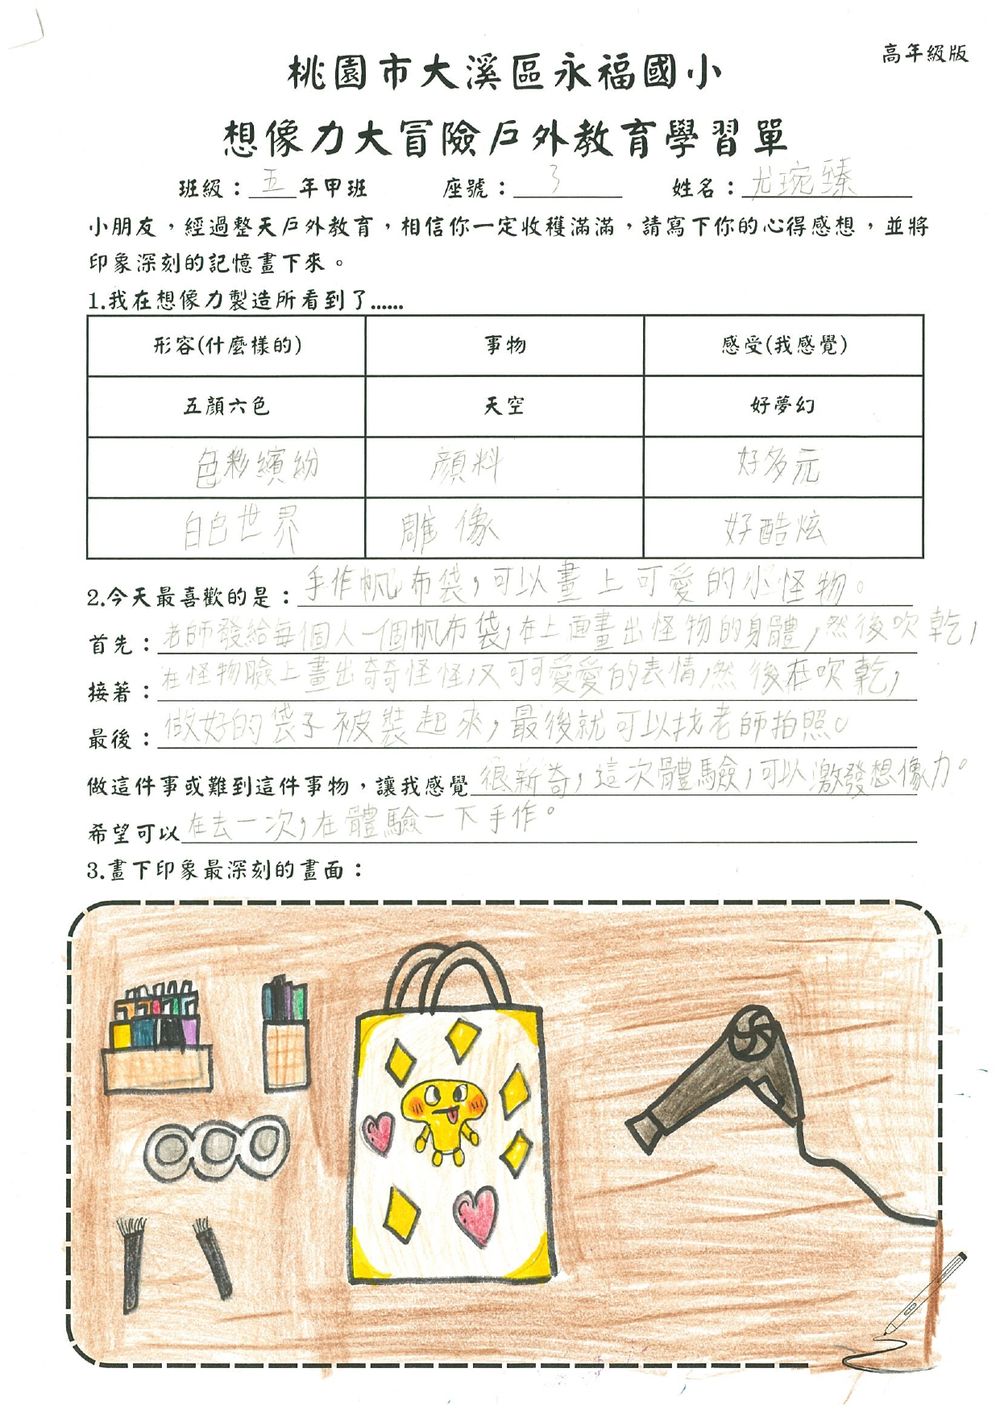 高年級版
桃園市大溪區永福國小
想像力大冒險戶外教育學習單
班級：五年甲班 座號：3 姓名：尤琬臻
小朋友，經過整天戶外教育，相信你一定收穫滿滿，請寫下你的心得感想，並將
印象深刻的記憶畫下來。
1.我在想像力製造所看到了......
形容(什麼樣的) 事物 感受(我感覺)
五顏六色 天空 好夢幻
色彩繽紛 顏料 好多元
白色世界 雕像 好酷炫
2.今天最喜歡的是：手作帆布袋，可以畫上可愛的小怪物。
首先：老師發給每個人一個帆布袋，在上面畫出怪物的身體，然後吹乾，
接著：在怪物臉上畫出奇奇怪怪，又可可愛愛的表情，然後在吹乾，
最後：做好的袋子被裝起來，最後就可以找老師拍照。
做這件事或難到這件事物，讓我感覺很新奇，這次體驗，可以激發想像力。
希望可以在去一次，在體驗一下手作。
3.畫下印象最深刻的畫面：